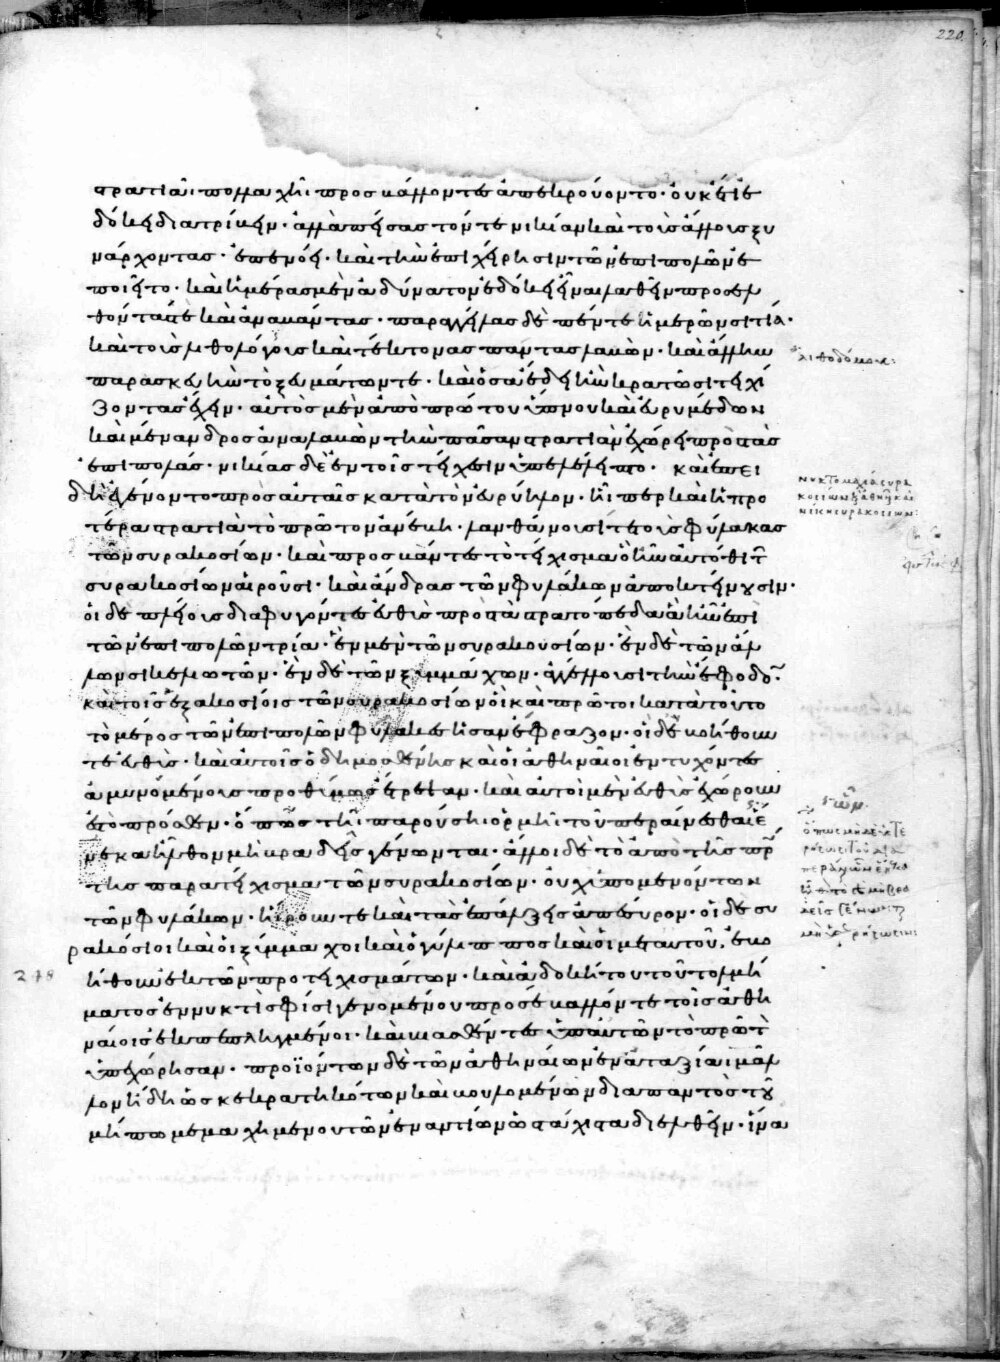 220
στρατιᾶι πολλαχῆι προσβάλλοντες ἀπεκρούοντο· οὐκέτι ἐ
δόκει διατρίβειν· ἀλλὰ πείσας τόν τε νικίαν καὶ τοὺς ἄλλους ξυ
νάρχοντας· ἐπενόει· καὶ τὴν ἐπιχείρησιν τῶν ἐπιπολῶν ἐ
ποιεῖτο· καὶ ἡμέρας μὲν ἀδύνατον ἐδόκει εἶναι λαθεῖν προσελ
θόντάς τε καὶ ἀναβάντας· παραγγείλας δὲ πέντε ἡμερῶν σιτία·
καὶ τοὺς λιθολόγους καὶ τέκτονας πάντας λαβὼν· καὶ ἄλλην
παρασκευὴν τοξευμάτων τε· καὶ ὅσα ἔδει ἢν κρατῶσι τειχί
ζοντας ἔχειν· αὐτὸς μὲν ἀπὸ πρώτου ὕπνου καὶ εὐρυμέδων
καὶ μένανδρος ἀναλαβὼν τὴν πᾶσαν στρατιὰν ἐχώρει πρὸς τὰς
ἐπιπολάς· νικίας δὲ ἐν τοῖς τείχεσιν ὑπελέλειπτο· καὶ ἐπει
δὴ ἐγένοντο πρὸς αὐταῖς κατὰ τὸν εὐρύηλον· ἧι περ καὶ ἡ προ
τέρα στρατιὰ τὸ πρῶτον ἀνέβη· λανθάνουσί τε τοὺς φύλακας
τῶν συρακοσίων· καὶ προσβάντες τὸ τείχισμα ὃ ἦν αὐτόθι τῶν
συρακοσίων αἱροῦσι· καὶ ἄνδρας τῶν φυλάκων ἀποκτείνουσιν·
οἱ δὲ πλείους διαφυγόντες εὐθὺς πρὸς τὰ στρατόπεδα ἃ ἦν ἐπὶ
τῶν ἐπιπολῶν τρία· ἓν μὲν τῶν συρακουσίων· ἓν δὲ τῶν ἄλ
λων σικελιωτῶν· ἓν δὲ τῶν ξυμμάχων· ἀγγέλλουσι τὴν ἔφοδον·
καὶ τοῖς ἑξακοσίοις τῶν συρακοσίων οἳ καὶ πρῶτοι κατὰ τοῦτο
τὸ μέρος τῶν ἐπιπολῶν φύλακες ἦσαν ἔφραζον· οἱ δὲ ἐβοήθουν
τε εὐθὺς· καὶ αὐτοῖς ὁ δημοσθένης καὶ οἱ ἀθηναῖοι ἐντυχόντες
ἀμυνομένους προθύμως ἔτρεψαν· καὶ αὐτοὶ μὲν εὐθὺς ἐχώρουν
ἐς τὸ πρόσθεν· ὅπως τῆι παρούσηι ὁρμῆι τοῦ περαίνεσθαι ὧν ἕ
νεκα ἦλθον μὴ βραδεῖς γένωνται· ἄλλοι δὲ τὸ ἀπὸ τῆς πρώ
της παρατείχισμα τῶν συρακοσίων· οὐχ ὑπομενόντων
τῶν φυλάκων· ἥιρουν τε καὶ τὰς ἐπάλξεις ἀπέσυρον· οἱ δὲ συ
ρακόσιοι καὶ οἱ ξύμμαχοι καὶ ὁ γύλιππος καὶ οἱ μετ αὐτοῦ· ἐβο
ήθουν ἐκ τῶν προτειχισμάτων· καὶ ἀδοκήτου τοῦ τολμή
ματος ἐν νυκτὶ σφίσι γενομένου προσέβαλλόν τε τοῖς ἀθη
ναίοις ἐκπεπληγμένοι· καὶ βιασθέντες ὑπ αὐτῶν τὸ πρῶτον
ὑπεχώρησαν· προϊόντων δὲ τῶν ἀθηναίων ἐν ἀταξίαι μᾶλ
λον ἤδη ὡς κεκρατηκότων καὶ βουλομένων διὰ παντὸς τοῦ
μήπω μεμαχημένου τῶν ἐναντίων ὡς τάχιστα διελθεῖν· ἵνα
λιθοδόμους:
νυκτομαχία συρα
κοσίων καὶ ἀθηναίων καὶ
νίκη συρακοσίων:
278